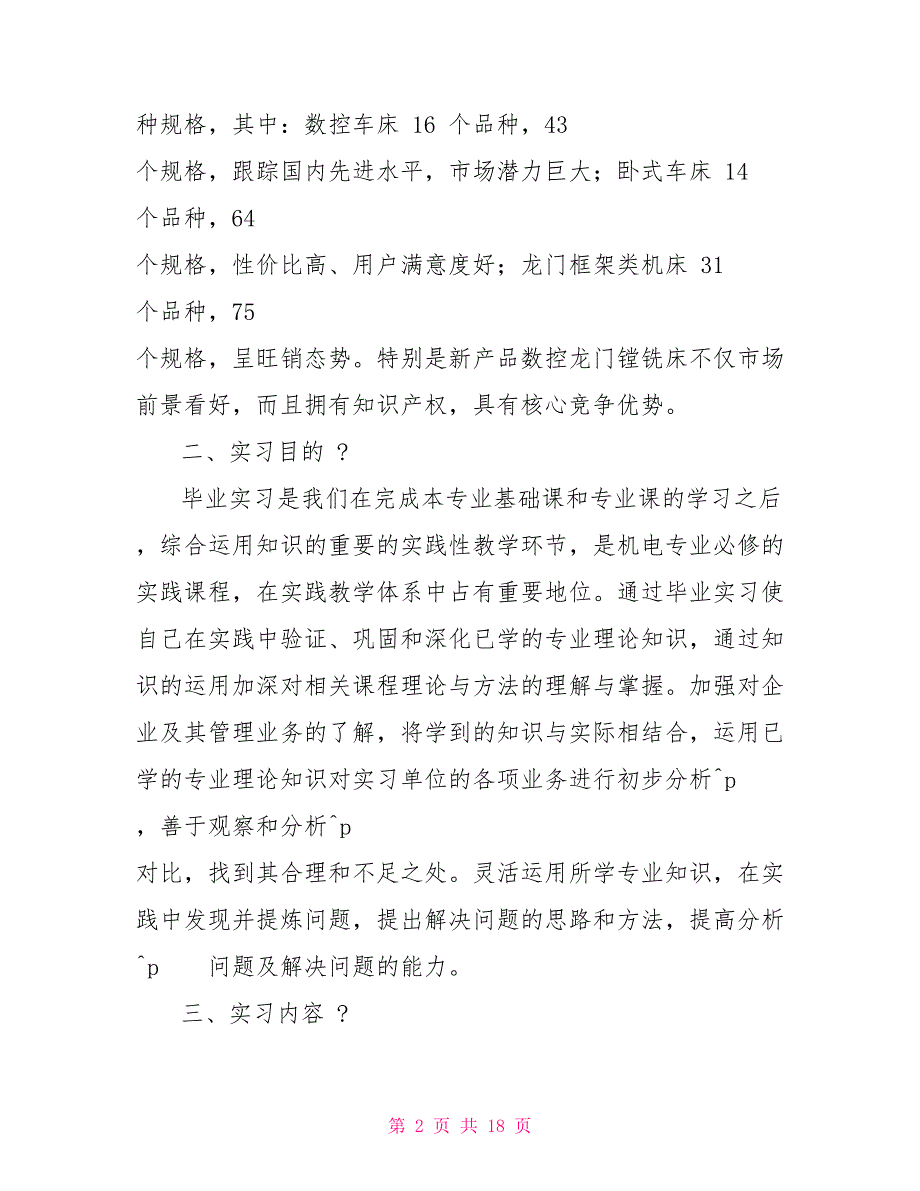 种规格，其中：数控车床 16 个品种，43
个规格，跟踪国内先进水平，市场潜力巨大；卧式车床 14
个品种，64
个规格，性价比高、用户满意度好；龙门框架类机床 31
个品种，75
个规格，呈旺销态势。特别是新产品数控龙门镗铣床不仅市场
前景看好，而且拥有知识产权，具有核心竞争优势。
二、实习目的 ?
毕业实习是我们在完成本专业基础课和专业课的学习之后
，综合运用知识的重要的实践性教学环节，是机电专业必修的
实践课程，在实践教学体系中占有重要地位。通过毕业实习使
自己在实践中验证、巩固和深化已学的专业理论知识，通过知
识的运用加深对相关课程理论与方法的理解与掌握。加强对企
业及其管理业务的了解，将学到的知识与实际相结合，运用已
学的专业理论知识对实习单位的各项业务进行初步分析^p
，善于观察和分析^p
对比，找到其合理和不足之处。灵活运用所学专业知识，在实
践中发现并提炼问题，提出解决问题的思路和方法，提高分析
^p 问题及解决问题的能力。
三、实习内容 ?
第 2 页 共 18 页